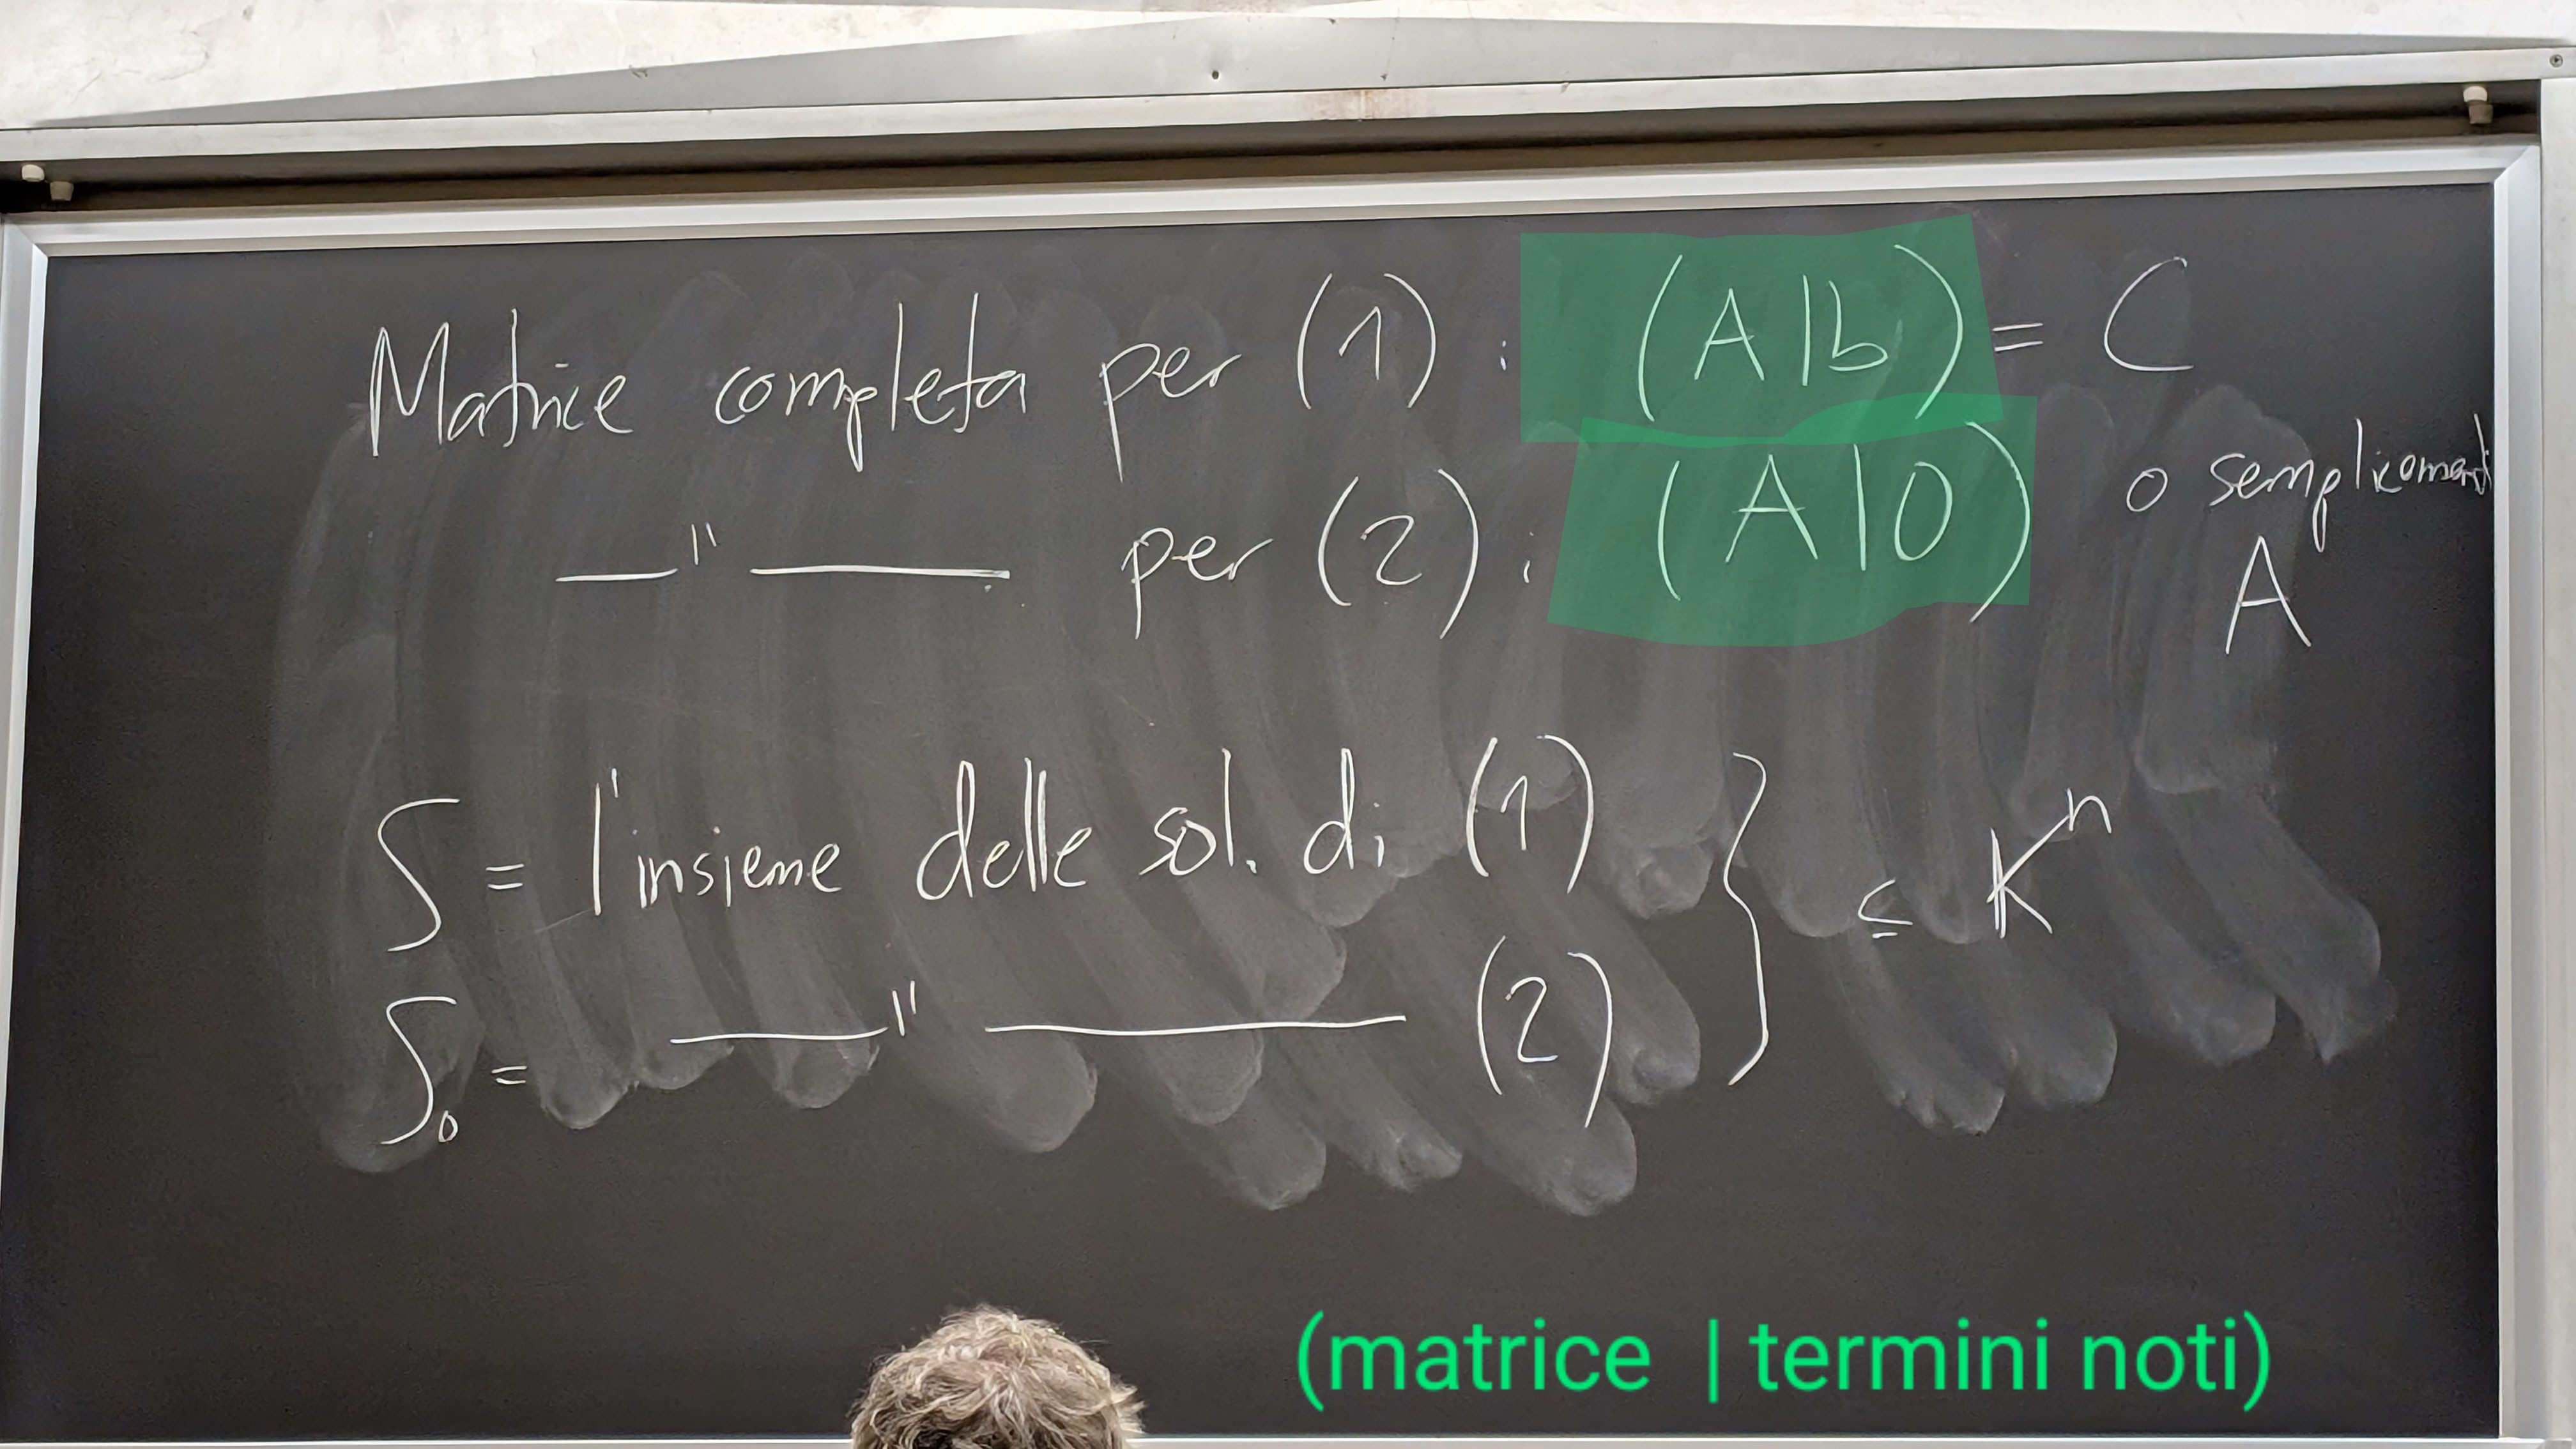 Matrice completa per (1) : (A|b) = C
—"— per (2) : (A|0) o semplicement
A
S = l'insieme delle sol. di (1)
} ⊆ Kⁿ
S₀ = —"— (2)
(matrice | termini noti)